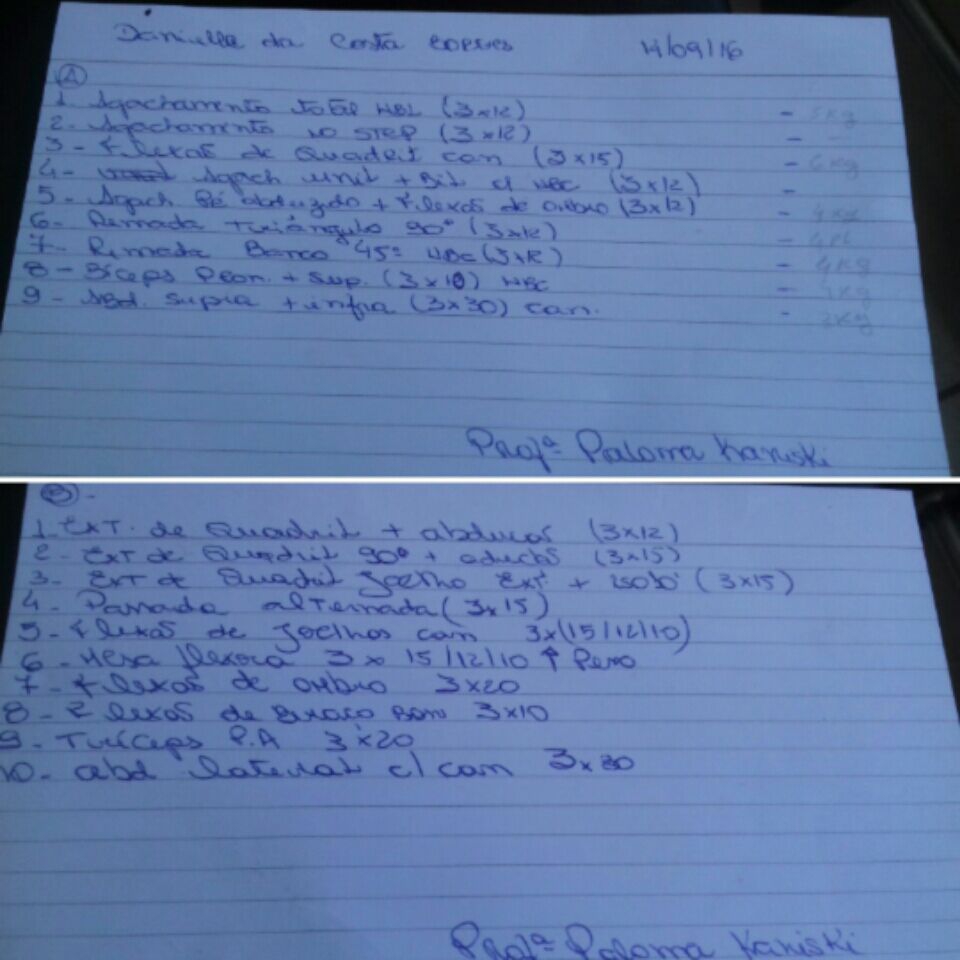 Danielle da Costa 14/09/16
A
1. Agachamento total HBL (3x12) - 5kg
2. Agachamento no STEP (3x12) -
3 - Flexão de Quadril can (3x15) - 6kg
4 - Agach unil + Bil c/ HBC (3x12) -
5. Agach Pé abduzido + Flexão de ombro (3x12) - 4kg
6 - Remada Triângulo 90º (3x12) -
7 - Remada Banco 45º HBC (3x12) - 4kg
8 - Bíceps Pron. + Sup. (3x10) HBC - 4kg
9 - Abd. supra + infra (3x30) can. - 3kg
Profª Paloma Kaniski
B -
1. Ext. de Quadril + abducao (3x12)
2 - Ext de Quadril 90º + (3x15)
3 - Ext de Quadril Joelho Ext + (3x15)
4 - Passada alternada (3x15)
5 - Flexão de Joelhos can 3x(15/12/10)
6 - Mesa flexora 3x 15/12/10 ↑ Peso
7 - Flexão de ombro 3x20
8 - Flexão de Braço 3x10
9 - Tríceps P.A 3x20
10 - abd lateral c/ can 3x30
Profª Paloma Kaniski